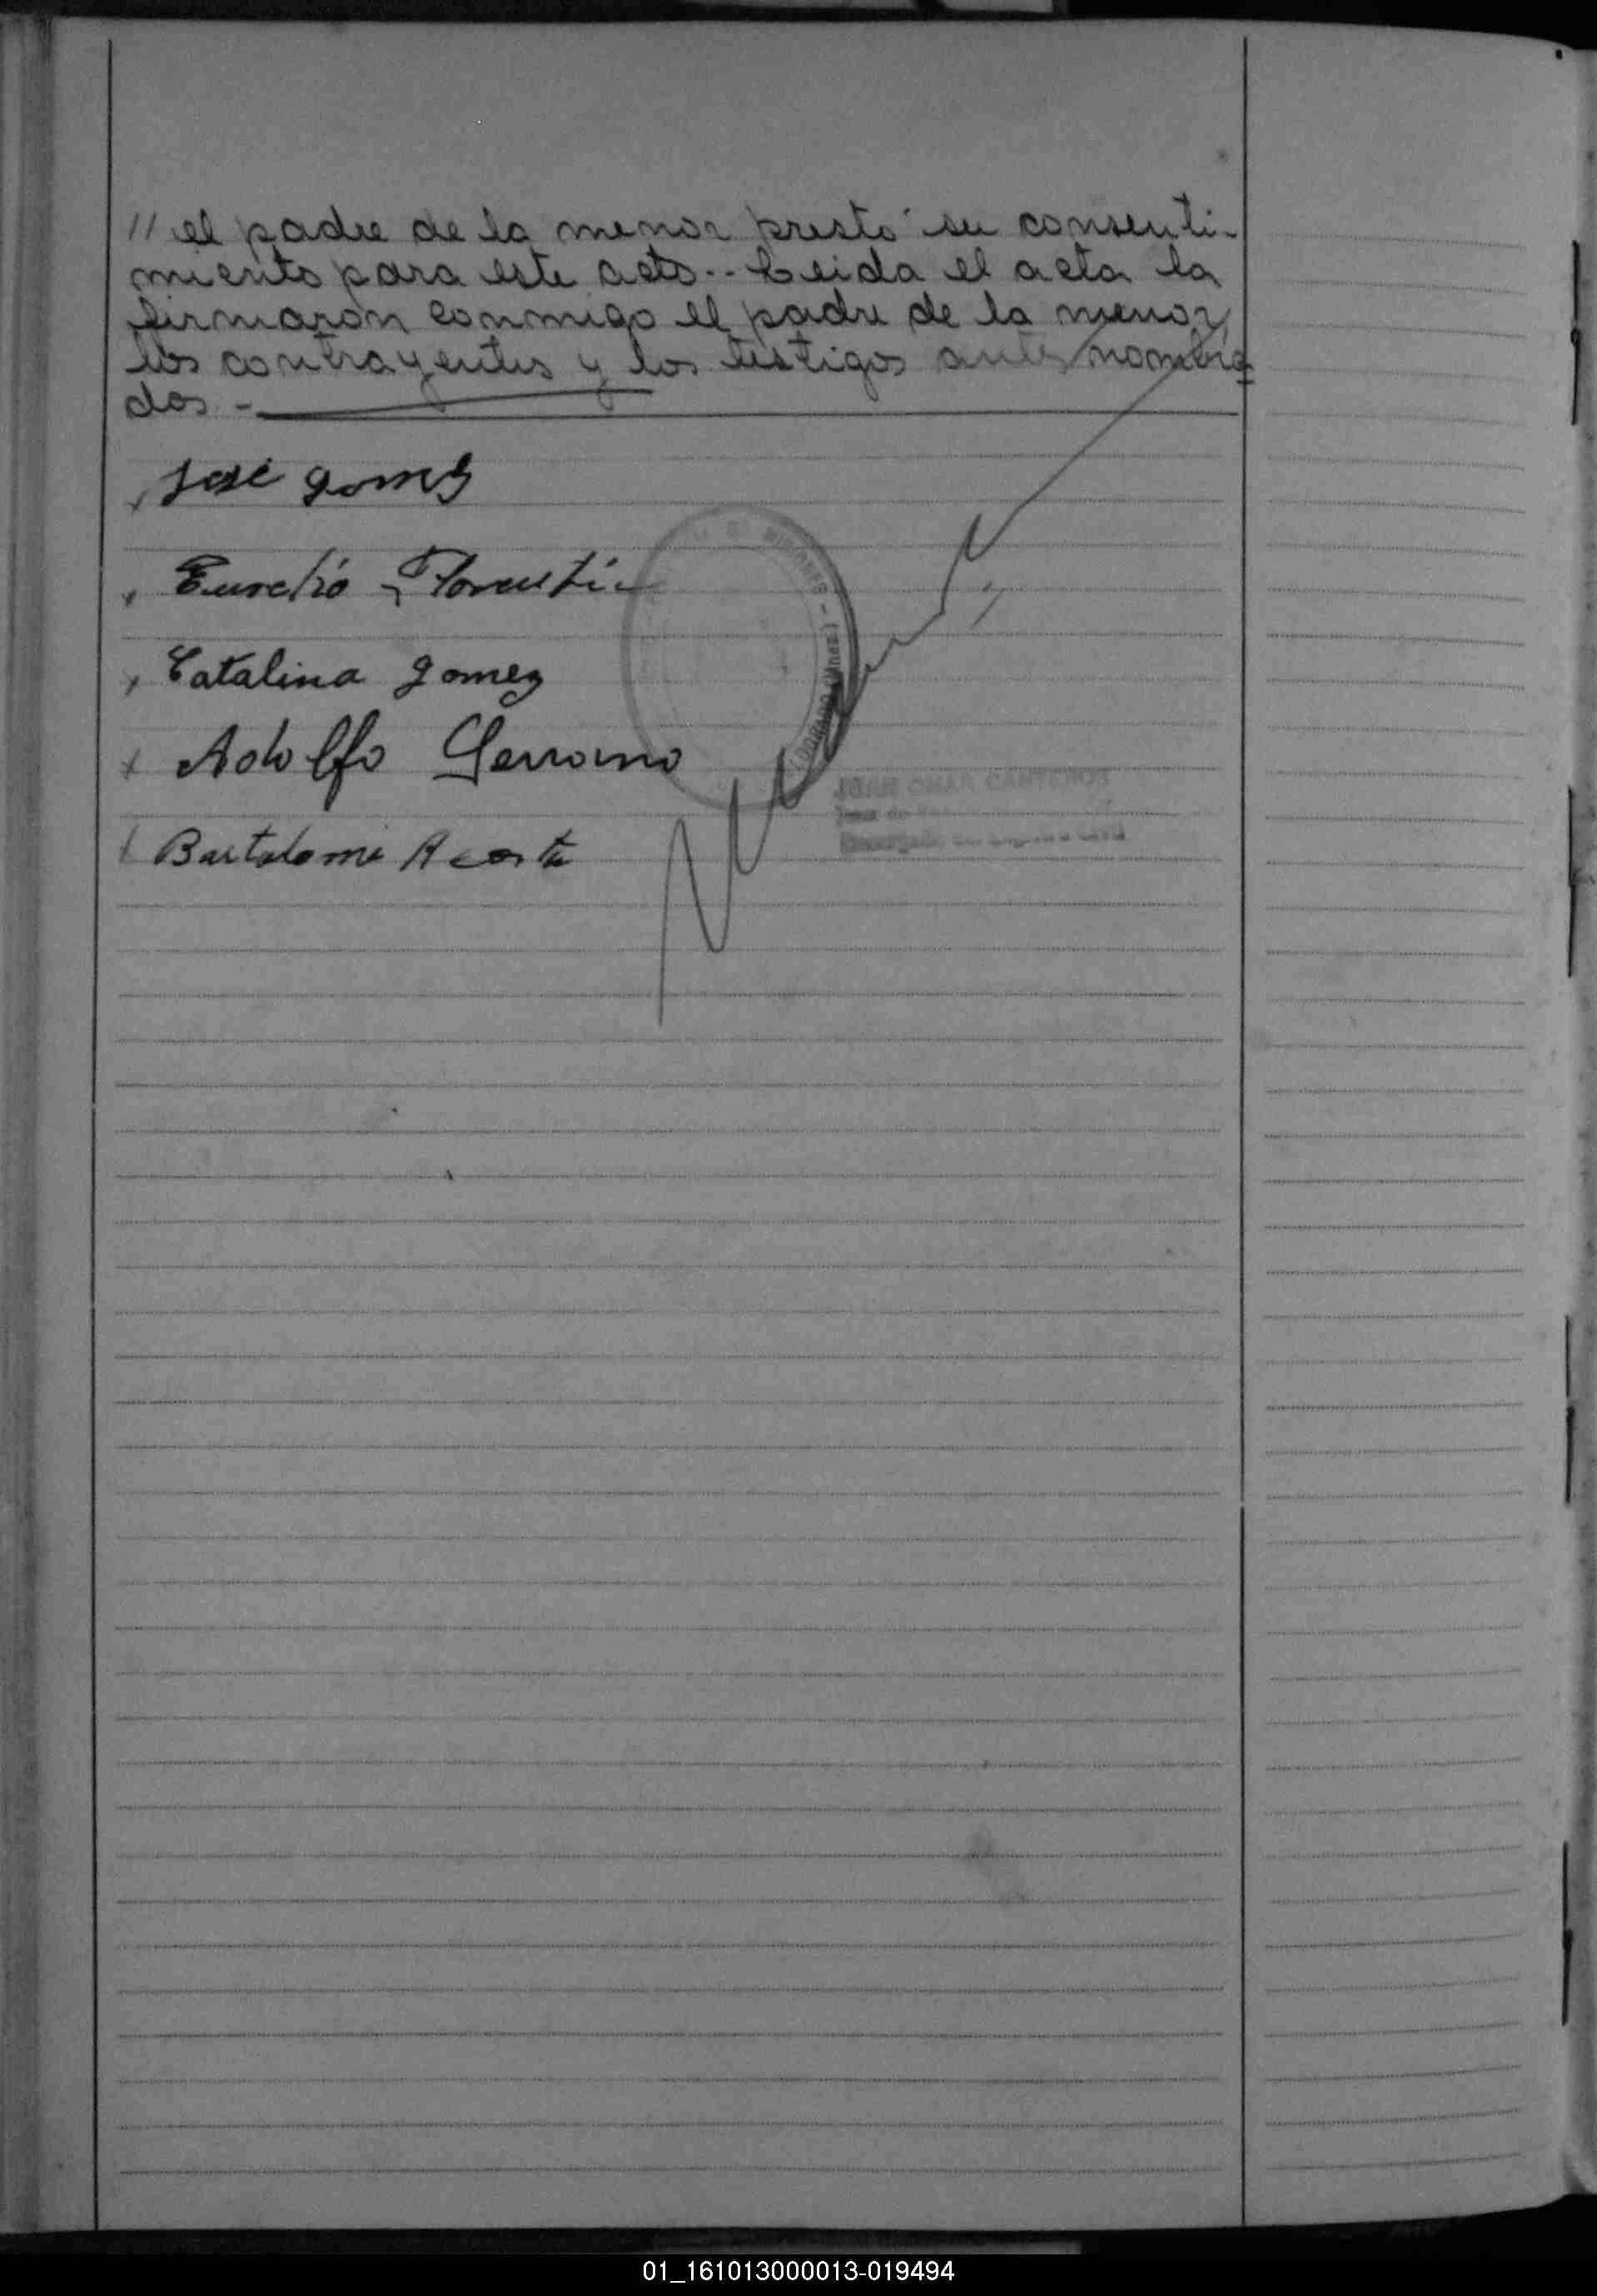 // el padre de la menor prestó su consenti-
miento para este acto.- Leida el acta la
firmaron conmigo el padre de la menor,
los contrayentes y los testigos antes nombra
dos -
José Gomez
Florentin
Catalina Gomez
Adolfo Serrano
Bartolome Acosta
MISIONES -
JUAN OMAR CANTEROS
Juez de
01_161013000013-019494